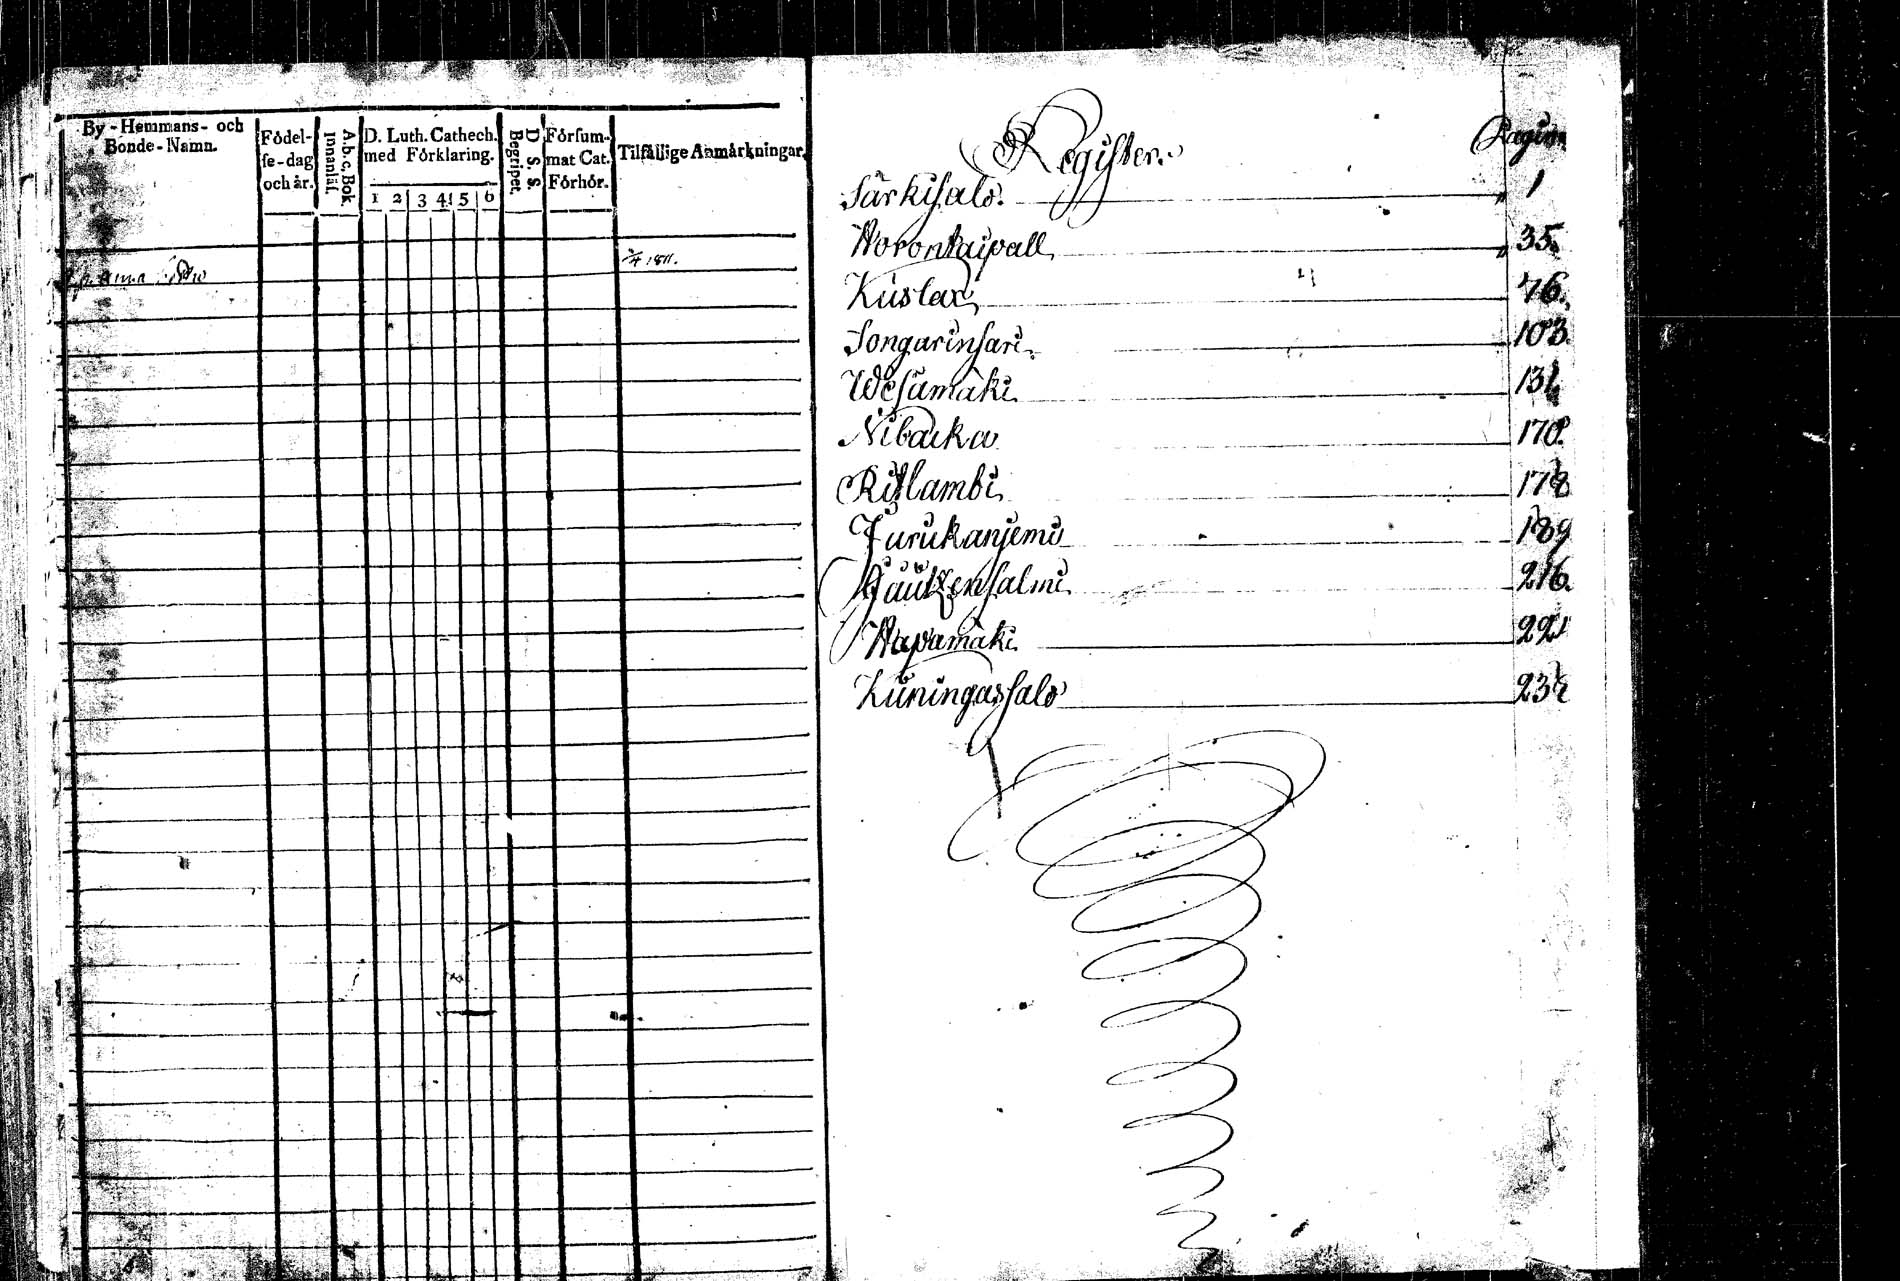 By - Hemmans - och
Bonde - Namn.
Födel-
se - dag
och år.
A.b.c. Bok
Innanläs.
D. Luth. Cathech.
med Förklaring.
1 2 3 4 5 6
D. S. S.
Begripet.
Försum-
mat Cat.
Förhör.
Tilfällige Anmärkningar.
Anna
1811.
Register. Pagina
Särkisalo. 1
Woronkaipall 35.
Kuslax 76.
Songarinsari. 103.
Wesamäki 131
Nibacka 170.
Rislambi 178
Jurukanjemi 189
salmi 216.
Hapamäki 221
Kuningassalo 232